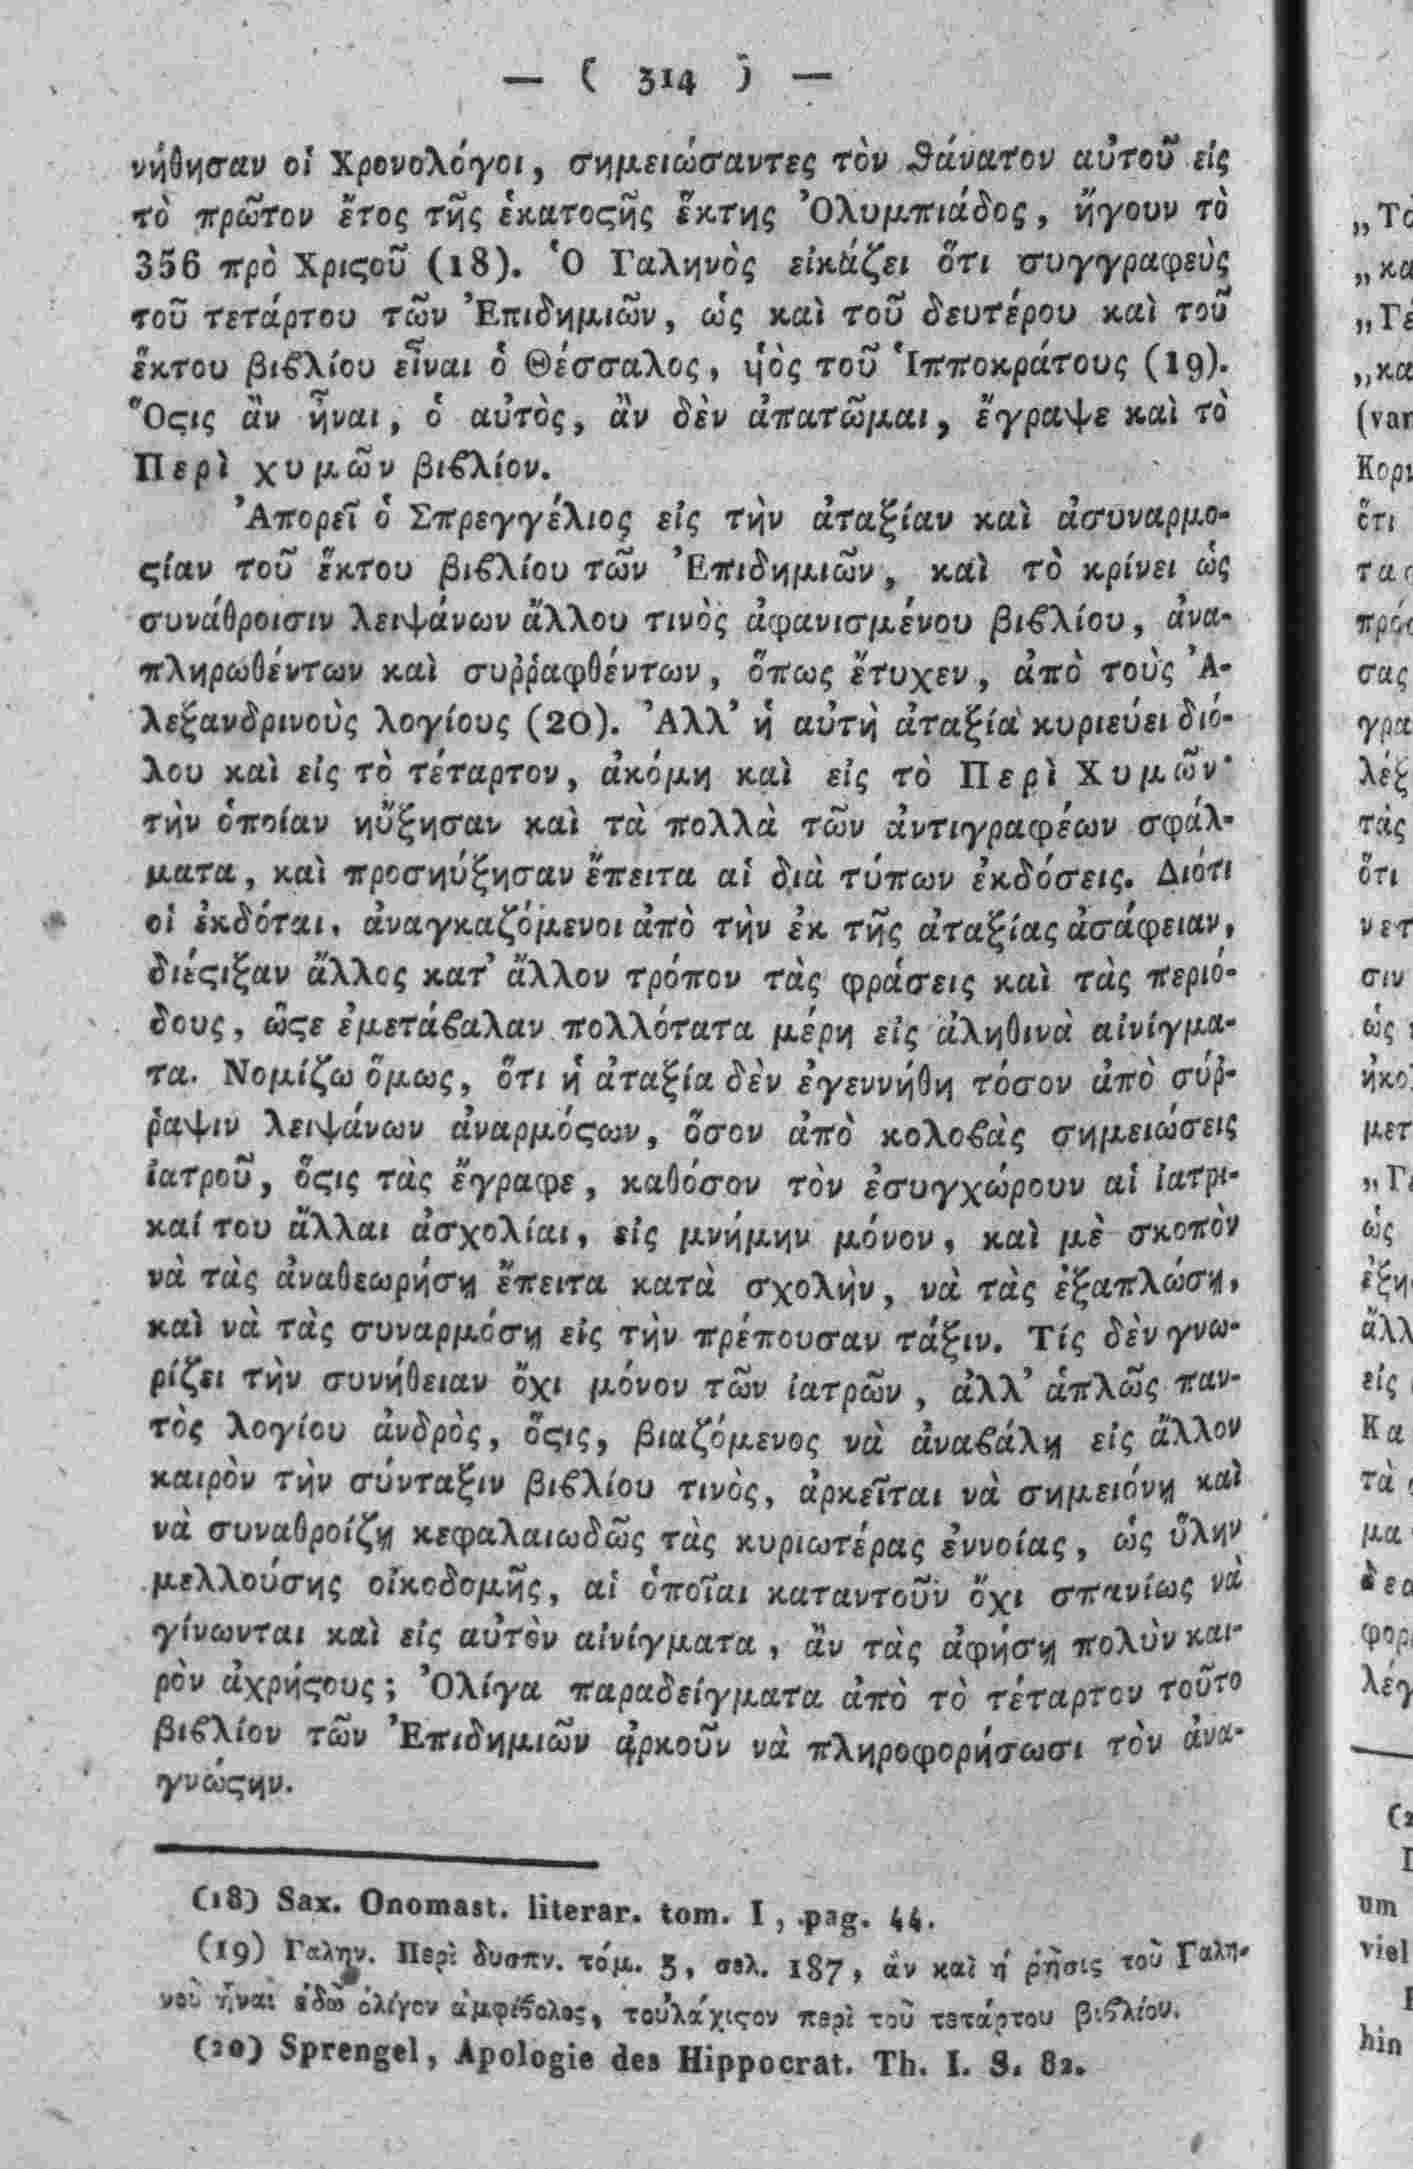 — ( 314 ) —
νήθησαν οἱ Χρονολόγοι, σημειώσαντες τὸν ϑάνατον αὐτοῦ εἰς
τὸ πρῶτον ἔτος τῆς ἑκατοςῆς ἕκτης Ὀλυμπιάδος, ἤγουν τὸ
356 πρὸ Χριςοῦ (18). Ὁ Γαληνὸς εἰκάζει ὅτι συγγραφεὺς
τοῦ τετάρτου τῶν Ἐπιδημιῶν, ὡς καὶ τοῦ δευτέρου καὶ τοῦ
ἕκτου βιϐλίου εἶναι ὁ Θέσσαλος, υἱὸς τοῦ Ἱπποκράτους (19).
Ὅςις ἂν ἦναι, ὁ αὐτὸς, ἂν δὲν ἀπατῶμαι, ἔγραψε καὶ τὸ
Περὶ χυμῶν βιϐλίον.
Ἀπορεῖ ὁ Σπρεγγέλιος εἰς τὴν ἀταξίαν καὶ ἀσυναρμο-
ςίαν τοῦ ἕκτου βιϐλίου τῶν Ἐπιδημιῶν, καὶ τὸ κρίνει ὡς
συνάθροισιν λειψάνων ἄλλου τινὸς ἀφανισμένου βιϐλίου, ἀνα-
πληρωθέντων καὶ συῤῥαφθέντων, ὅπως ἔτυχεν, ἀπὸ τοὺς Ἀ-
λεξανδρινοὺς λογίους (20). Ἀλλ’ ἡ αὐτὴ ἀταξία κυριεύει διό-
λου καὶ εἰς τὸ τέταρτον, ἀκόμη καὶ εἰς τὸ Περὶ Χυμῶν·
τὴν ὁποίαν ηὔξησαν καὶ τὰ πολλὰ τῶν ἀντιγραφέων σφάλ-
ματα, καὶ προσηύξησαν ἔπειτα αἱ διὰ τύπων ἐκδόσεις. Διότι
οἱ ἐκδόται, ἀναγκαζόμενοι ἀπὸ τὴν ἐκ τῆς ἀταξίας ἀσάφειαν,
διέςιξαν ἄλλος κατ’ ἄλλον τρόπον τὰς φράσεις καὶ τὰς περιό-
δους, ὥςε ἐμετάϐαλαν πολλότατα μέρη εἰς ἀληθινὰ αἰνίγμα-
τα. Νομίζω ὅμως, ὅτι ἡ ἀταξία δὲν ἐγεννήθη τόσον ἀπὸ σύῤ-
ῥαψιν λειψάνων ἀναρμόςων, ὅσον ἀπὸ κολοϐὰς σημειώσεις
ἰατροῦ, ὅςις τὰς ἔγραφε, καθόσον τὸν ἐσυγχώρουν αἱ ἰατρι-
καί του ἄλλαι ἀσχολίαι, εἰς μνήμην μόνον, καὶ μὲ σκοπὸν
νὰ τὰς ἀναθεωρήσῃ ἔπειτα κατὰ σχολὴν, νὰ τὰς ἐξαπλώσῃ,
καὶ νὰ τὰς συναρμόσῃ εἰς τὴν πρέπουσαν τάξιν. Τίς δὲν γνω-
ρίζει τὴν συνήθειαν ὄχι μόνον τῶν ἰατρῶν, ἀλλ’ ἁπλῶς παν-
τὸς λογίου ἀνδρὸς, ὅςις, βιαζόμενος νὰ ἀναϐάλῃ εἰς ἄλλον
καιρὸν τὴν σύνταξιν βιϐλίου τινὸς, ἀρκεῖται νὰ σημειόνῃ καὶ
νὰ συναθροίζῃ κεφαλαιωδῶς τὰς κυριωτέρας ἐννοίας, ὡς ὕλην
μελλούσης οἰκοδομῆς, αἱ ὁποῖαι καταντοῦν ὄχι σπανίως νὰ
γίνωνται καὶ εἰς αὐτὸν αἰνίγματα, ἂν τὰς ἀφήσῃ πολὺν και-
ρὸν ἀχρήςους; Ὀλίγα παραδείγματα ἀπὸ τὸ τέταρτον τοῦτο
βιϐλίον τῶν Ἐπιδημιῶν ἀρκοῦν νὰ πληροφορήσωσι τὸν ἀνα-
γνώςην.
(18) Sax. Onomast. literar. tom. I, pag. 44.
(19) Γαλην. Περὶ δυσπν. τόμ. 3, σελ. 187, ἂν καὶ ἡ ῥῆσις τοῦ Γαλη-
νοῦ ἦναι ἐδῶ ὀλίγον ἀμφίϐολος, τοὐλάχιςον περὶ τοῦ τετάρτου βιϐλίου.
(20) Sprengel, Apologie des Hippocrat. Th. I. S. 82.